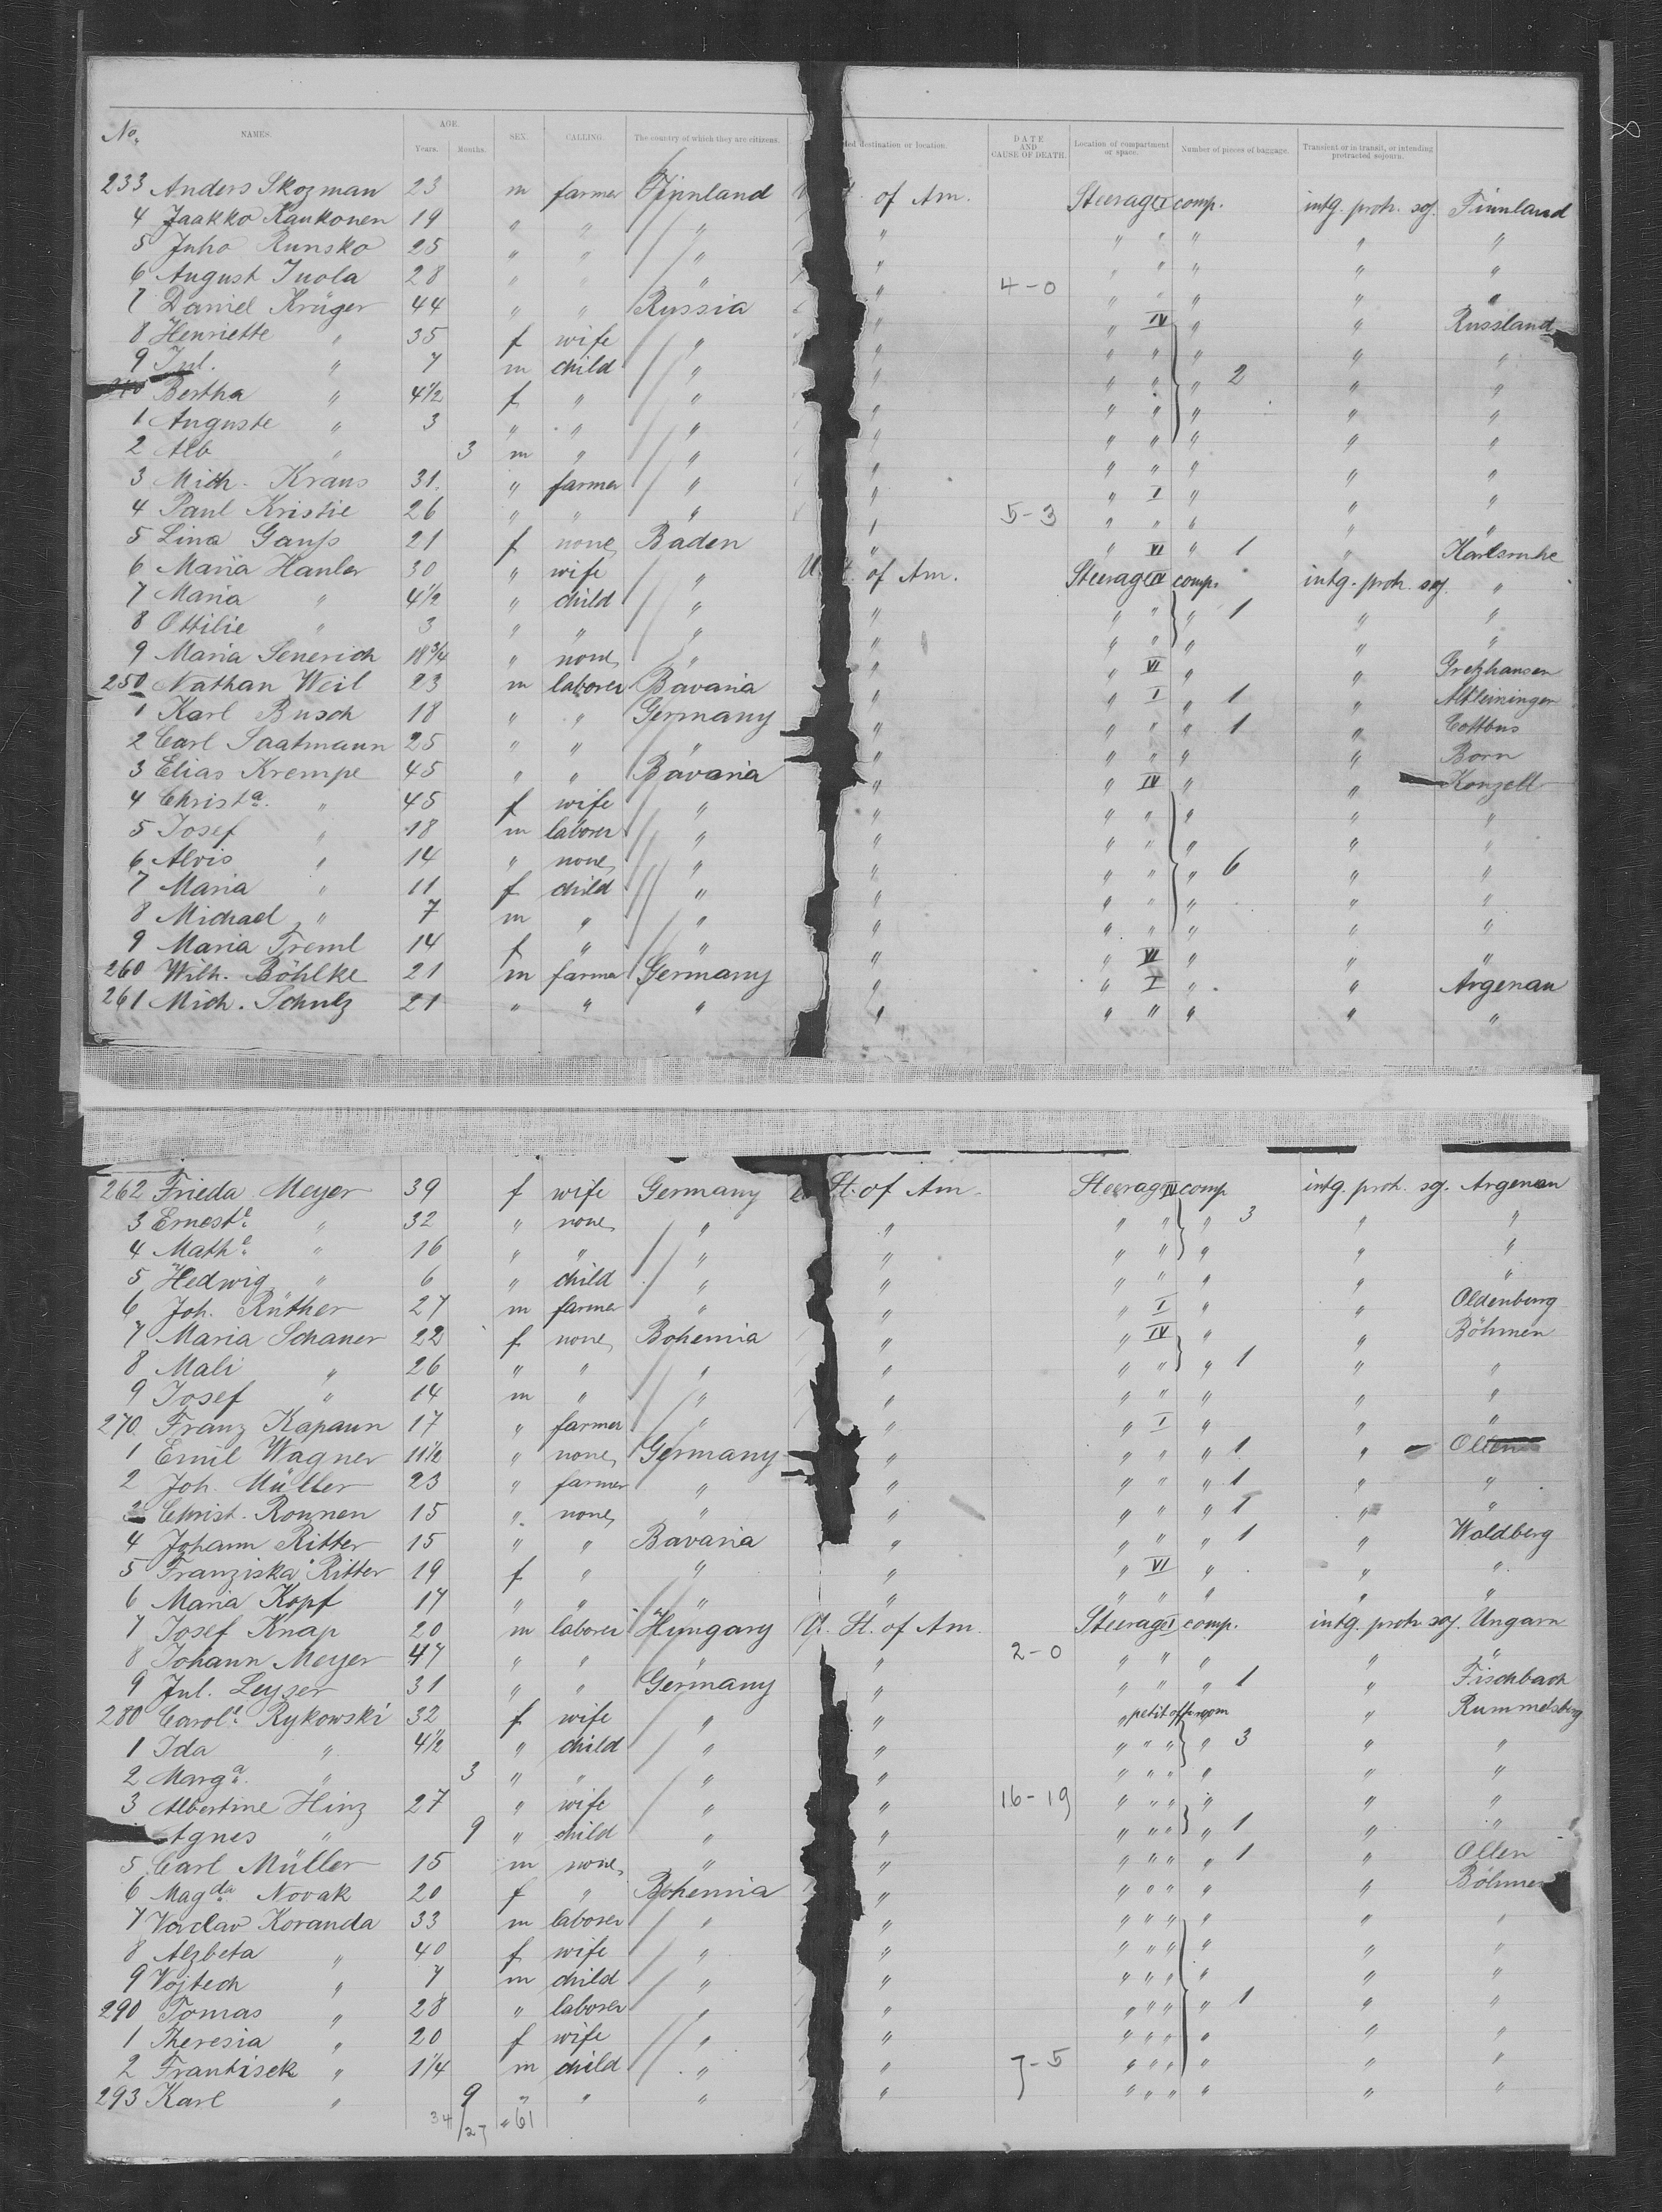 8
No. NAMES. AGE. Years. Months. SEX. CALLING. The country of which they are citizens. ded destination or location. DATE AND CAUSE OF DEATH. Location of compartment or space. Number of pieces of baggage. Transient or in transit, or intending protracted sojourn.
233 Anders Skozman 23 m farmer Finnland of Am. Steerage I comp. intg. protr. soj. Finnland
4 Jaakko Kaukonen 19 " " " " " " " " "
5 Juho Runsko 25 " " " " " " " " "
6 August Juola 28 " " " " 4-0 " " " " "
7 Daniel Krüger 44 " " Russia " " IV " " Russland
8 Henriette " 35 f wife " " " " " " "
9 Jul. " 7 m child " " " " " 2 " "
240 Bertha " 4½ f " " " " " " " "
1 Auguste " 3 " " " " " " " " "
2 Alb " 3 m " " " " " " " "
3 Mich. Kraus 31 " farmer " " " I " " "
4 Paul Kristie 26 " " " " 5-3 " " " " "
5 Lina Ganss 21 f none Baden " " VI " 1 " Karlsruhe
6 Maria Hauler 30 " wife " U. of Am. Steerage IV comp. intg. protr. soj. "
7 Maria " 4½ " child " " " " " 1 " "
8 Ottilie " 3 " " " " " " " " "
9 Maria Senerich 18¾ " none " " " VI " " Gretzhausen
250 Nathan Weil 23 m laborer Bavaria " " I " 1 " Altleiningen
1 Karl Busch 18 " " Germany " " " " 1 " Cottbus
2 Carl Saatmann 25 " " " " " " " " Born
3 Elias Krempe 45 " " Bavaria " " IV " " Konzell
4 Christa. " 45 f wife " " " " " " "
5 Josef " 18 m laborer " " " " " " "
6 Alois " 14 " none " " " " " 6 " "
7 Maria " 11 f child " " " " " " "
8 Michael " 7 m " " " " " " " "
9 Maria Treml 14 f " " " " VI " " "
260 Wilh. Böhlke 21 m farmer Germany " " I " " Argenau
261 Mich. Schulz 21 " " " " " " " " "
262 Frieda Meyer 39 f wife Germany St. of Am. Steerage IV comp intg. protr. soj. Argenau
3 Erneste. " 32 " none " " " " " 3 " "
4 Mathe. " 16 " " " " " " " " "
5 Hedwig " 6 " child " " " " " " "
6 Joh. Rüther 27 m farmer " " " I " " Oldenburg
7 Maria Schauer 22 f none Bohemia " " IV " " Böhmen
8 Mali " 26 " " " " " " " 1 " "
9 Josef " 14 m " " " " " " " "
270. Franz Kapaun 17 " farmer " " " I " " "
1 Emil Wagner 11½ " none Germany " " " " 1 " Ollen
2 Joh. Müller 23 " farmer " " " " " 1 " "
3 Christ. Ronnen 15 " none " " " " " 1 " "
4 Johann Ritter 15 " " Bavaria " " " " 1 " Waldberg
5 Franziska Ritter 19 f " " " " VI " " "
6 Maria Kopf 17 " " " " " " " " "
7 Josef Knap 20 m laborer Hungary U. St. of Am. Steerage I comp. intg. protr. soj. Ungarn
8 Johann Meyer 47 " " " " 2-0 " " " " "
9 Jul. Leyser 31 " " Germany " " " " 1 " Fischbach
280 Carole. Rykowski 32 f wife " " " petit off. room " Rummelsberg
1 Ida " 4½ " child " " " " " " 3 " "
2 Marga. " 3 " " " " " " " " " "
3 Albertine Hinz 27 " wife " " 16-19 " " " " " "
Agnes " 9 " child " " " " " " 1 " "
5 Carl Müller 15 m none " " " " " " 1 " Ollen
6 Magda Novak 20 f " Bohemia " " " " " " Böhmen
7 Vaclav Koranda 33 m laborer " " " " " " " "
8 Alzbeta " 40 f wife " " " " " " " "
9 Vojtech " 7 m child " " " " " " " "
290 Tomas " 28 " laborer " " " " " " 1 " "
1 Theresia " 20 f wife " " " " " " " "
2 Frantisek " 1¼ m child " " 7-5 " " " " " "
293 Karl " 9 " " " " " " " " " "
34/27 = 61